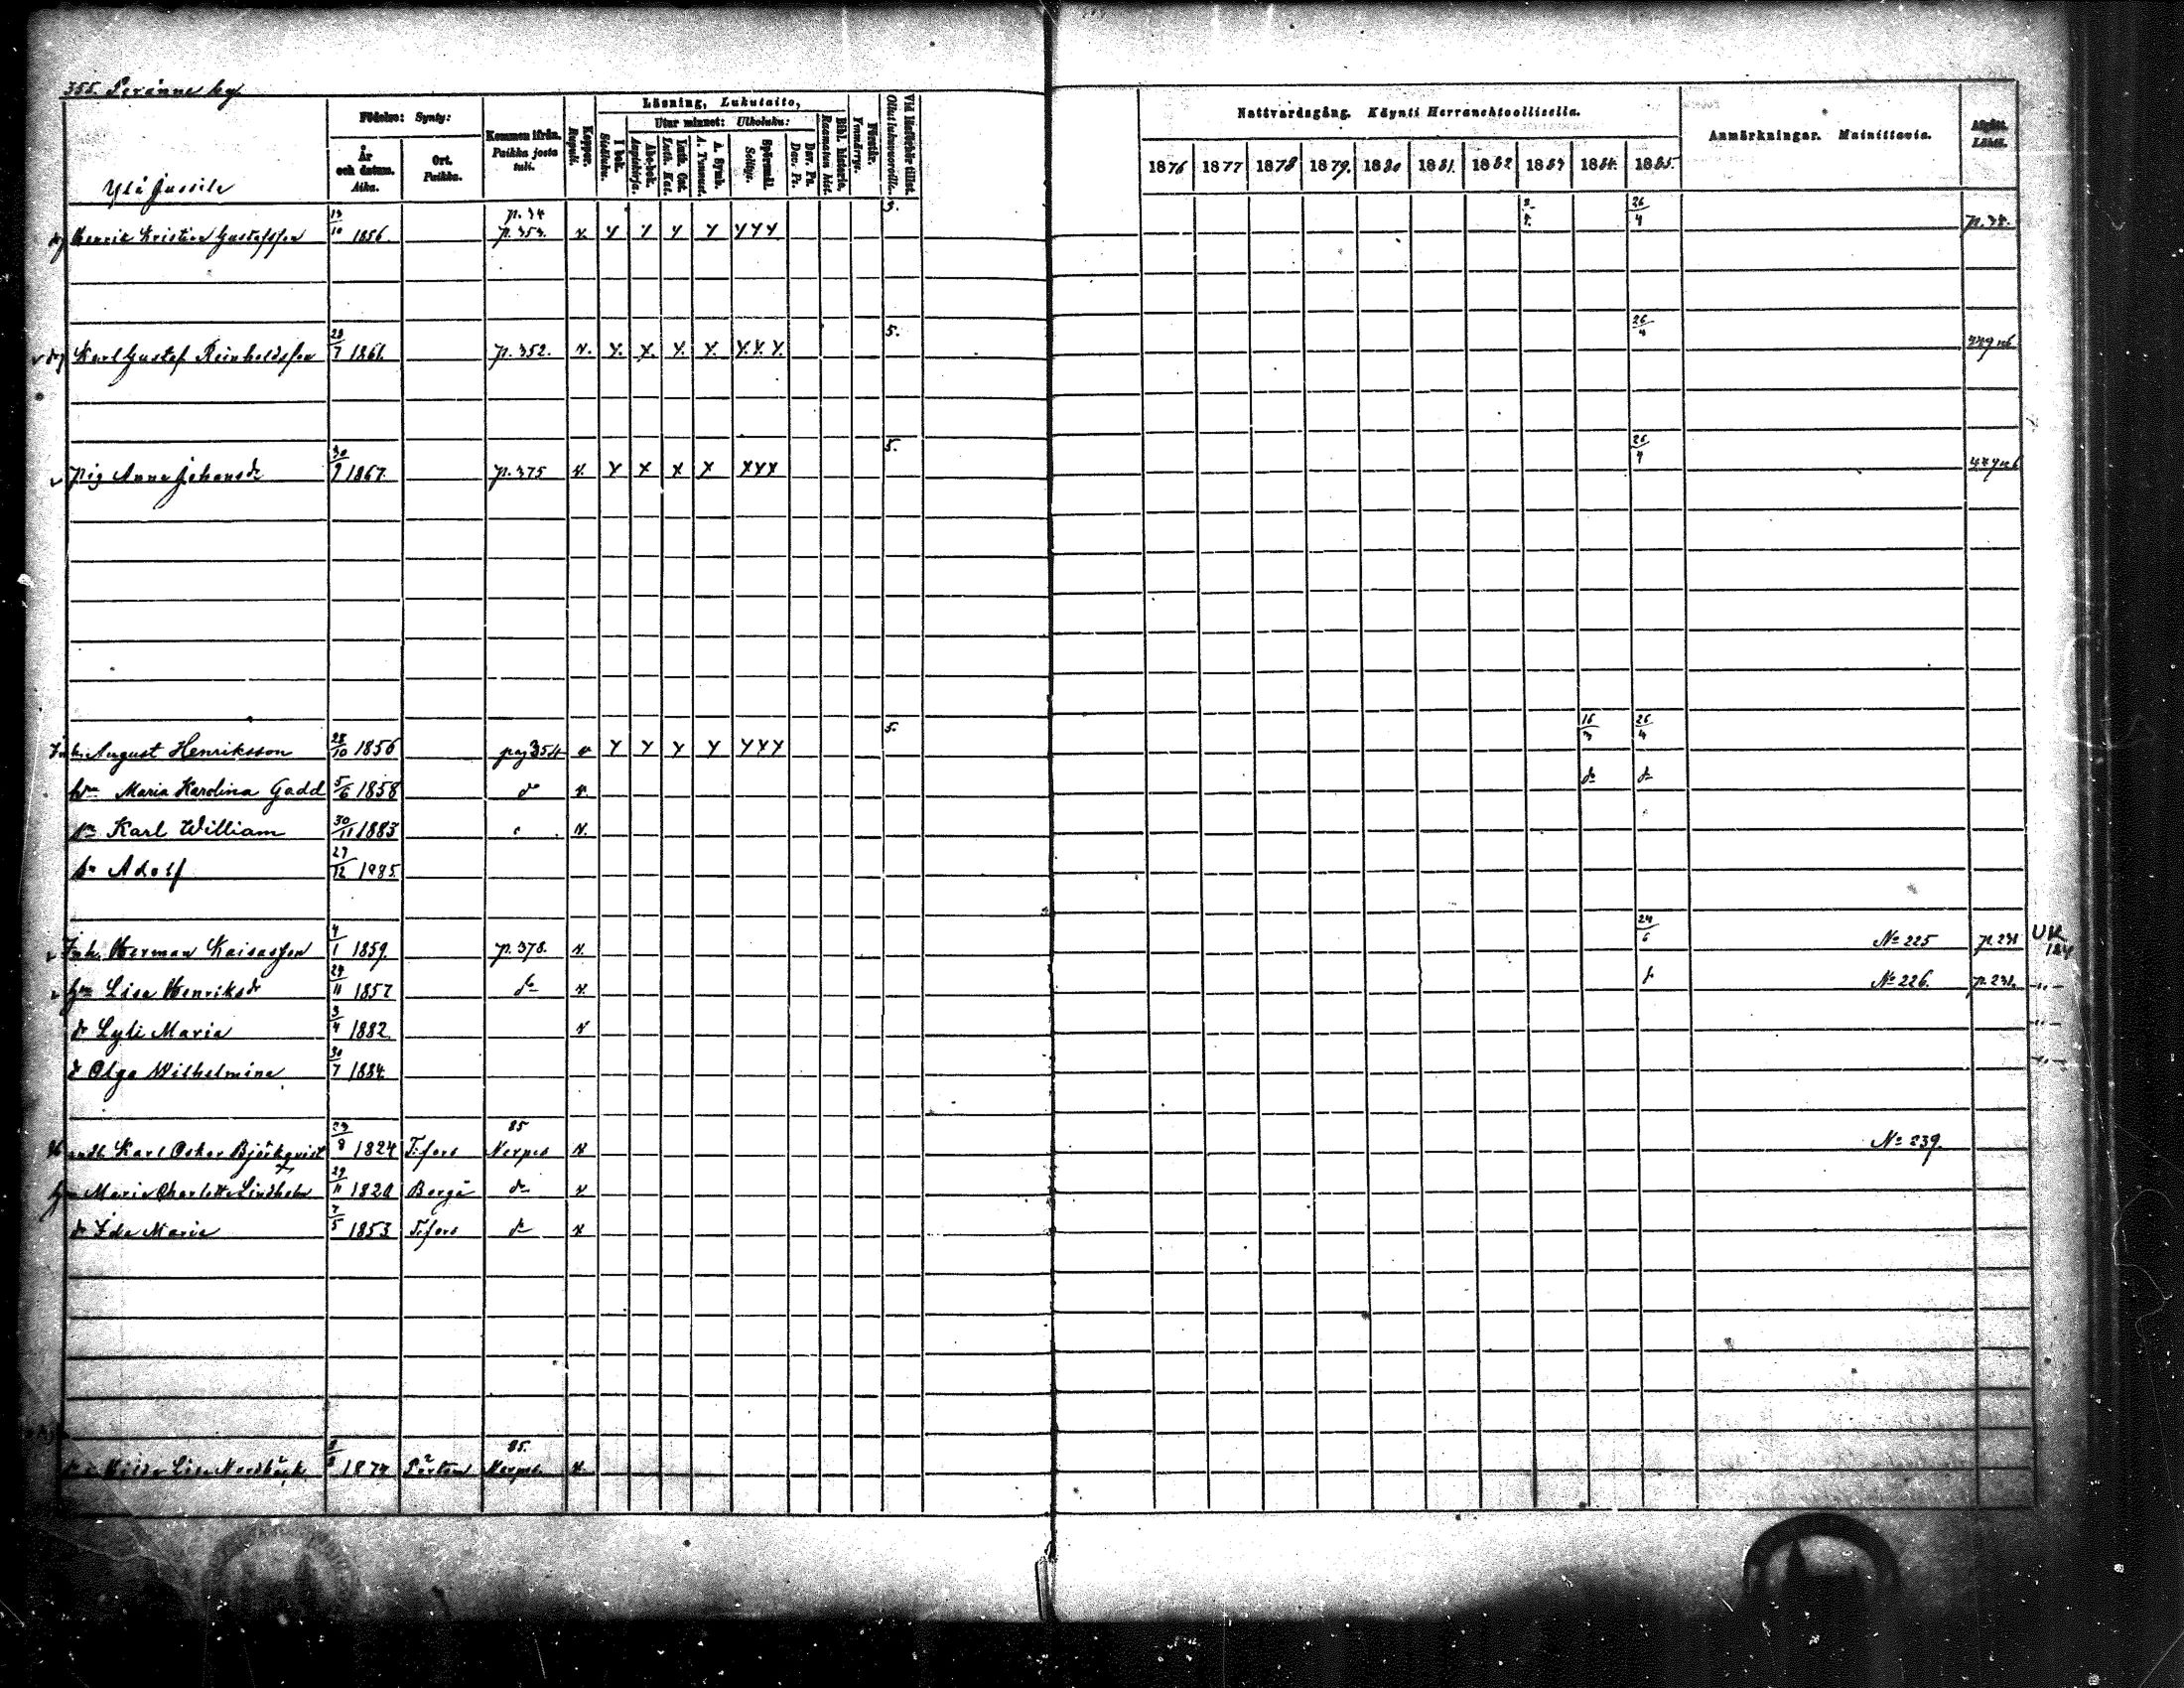 355. Peränne by.
Födelse: Synty:
År och datum. Aika.
Ort. Paikka.
Kommen ifrån. Paikka josta tuli.
Koppor. Rupuli.
Läsning, Lukutaito,
I bok. Sisäluku.
Utur minnet: Ulkoluku:
Abc-bok. Aapiskirja.
Luth. Cat. Luth. Kat.
A. Symb. A. Tunnust.
Spörsmål. Selitys.
Dav. Ps. Dav. Ps.
Bibl. historia. Raamatun hist.
Förstår. Ymmärrys.
Vid läsförhör tillst. Ollut lukuvuoroilla.
Nattvardsgång. Käynti Herranehtoollisella.
1876 1877 1878 1879. 1880 1881. 1882 1883 1884. 1885.
Anmärkningar. Mainittavia.
Afgått. Lähti.
Yli Jussila
Henrik Kristian Gustafsson 13/10 1856. p. 34 p. 353. v. Y Y Y Y YYY 3. 26/4 p. 38.
v dg Karl Gustaf Reinholdsson 29/7 1861. p. 352. v. Y. Y. Y. Y. Y.Y.Y. 5. 26/4
v pig Anna Johansdr 30/9 1867. p. 375 v. Y X X X XXX 5. 26/4
Inh. August Henriksson 28/10 1856 pag 354 v Y Y Y Y YYY 5. 16/3 26/4
hu Maria Karolina Gadd 5/6 1858 do v. do do
sn Karl William 30/11 1883 v.
sn Adolf 27/12 1885
v Inh. Herman Kaisasson 4/1 1859. p. 378. v. 24/6 No 225 p. 231 UK 184
v hu Lisa Henriksdr 29/11 1857 do v. No 226. p. 231. -"-
dr Lyli Maria 3/4 1882 v -"-
d Olga Wilhelmina 30/7 1884 -"-
Karl Oskar Björkqvist 23/8 1824 T:fors 85 Nerpes v No 239.
Maria Charlotta Lindholm 29/11 1820 Borgå do v
dr Ida Maria 7/5 1853 T:fors do v
Hilda Lisa Nordbäck 1874 Pörtom 85. Nerpes. v.